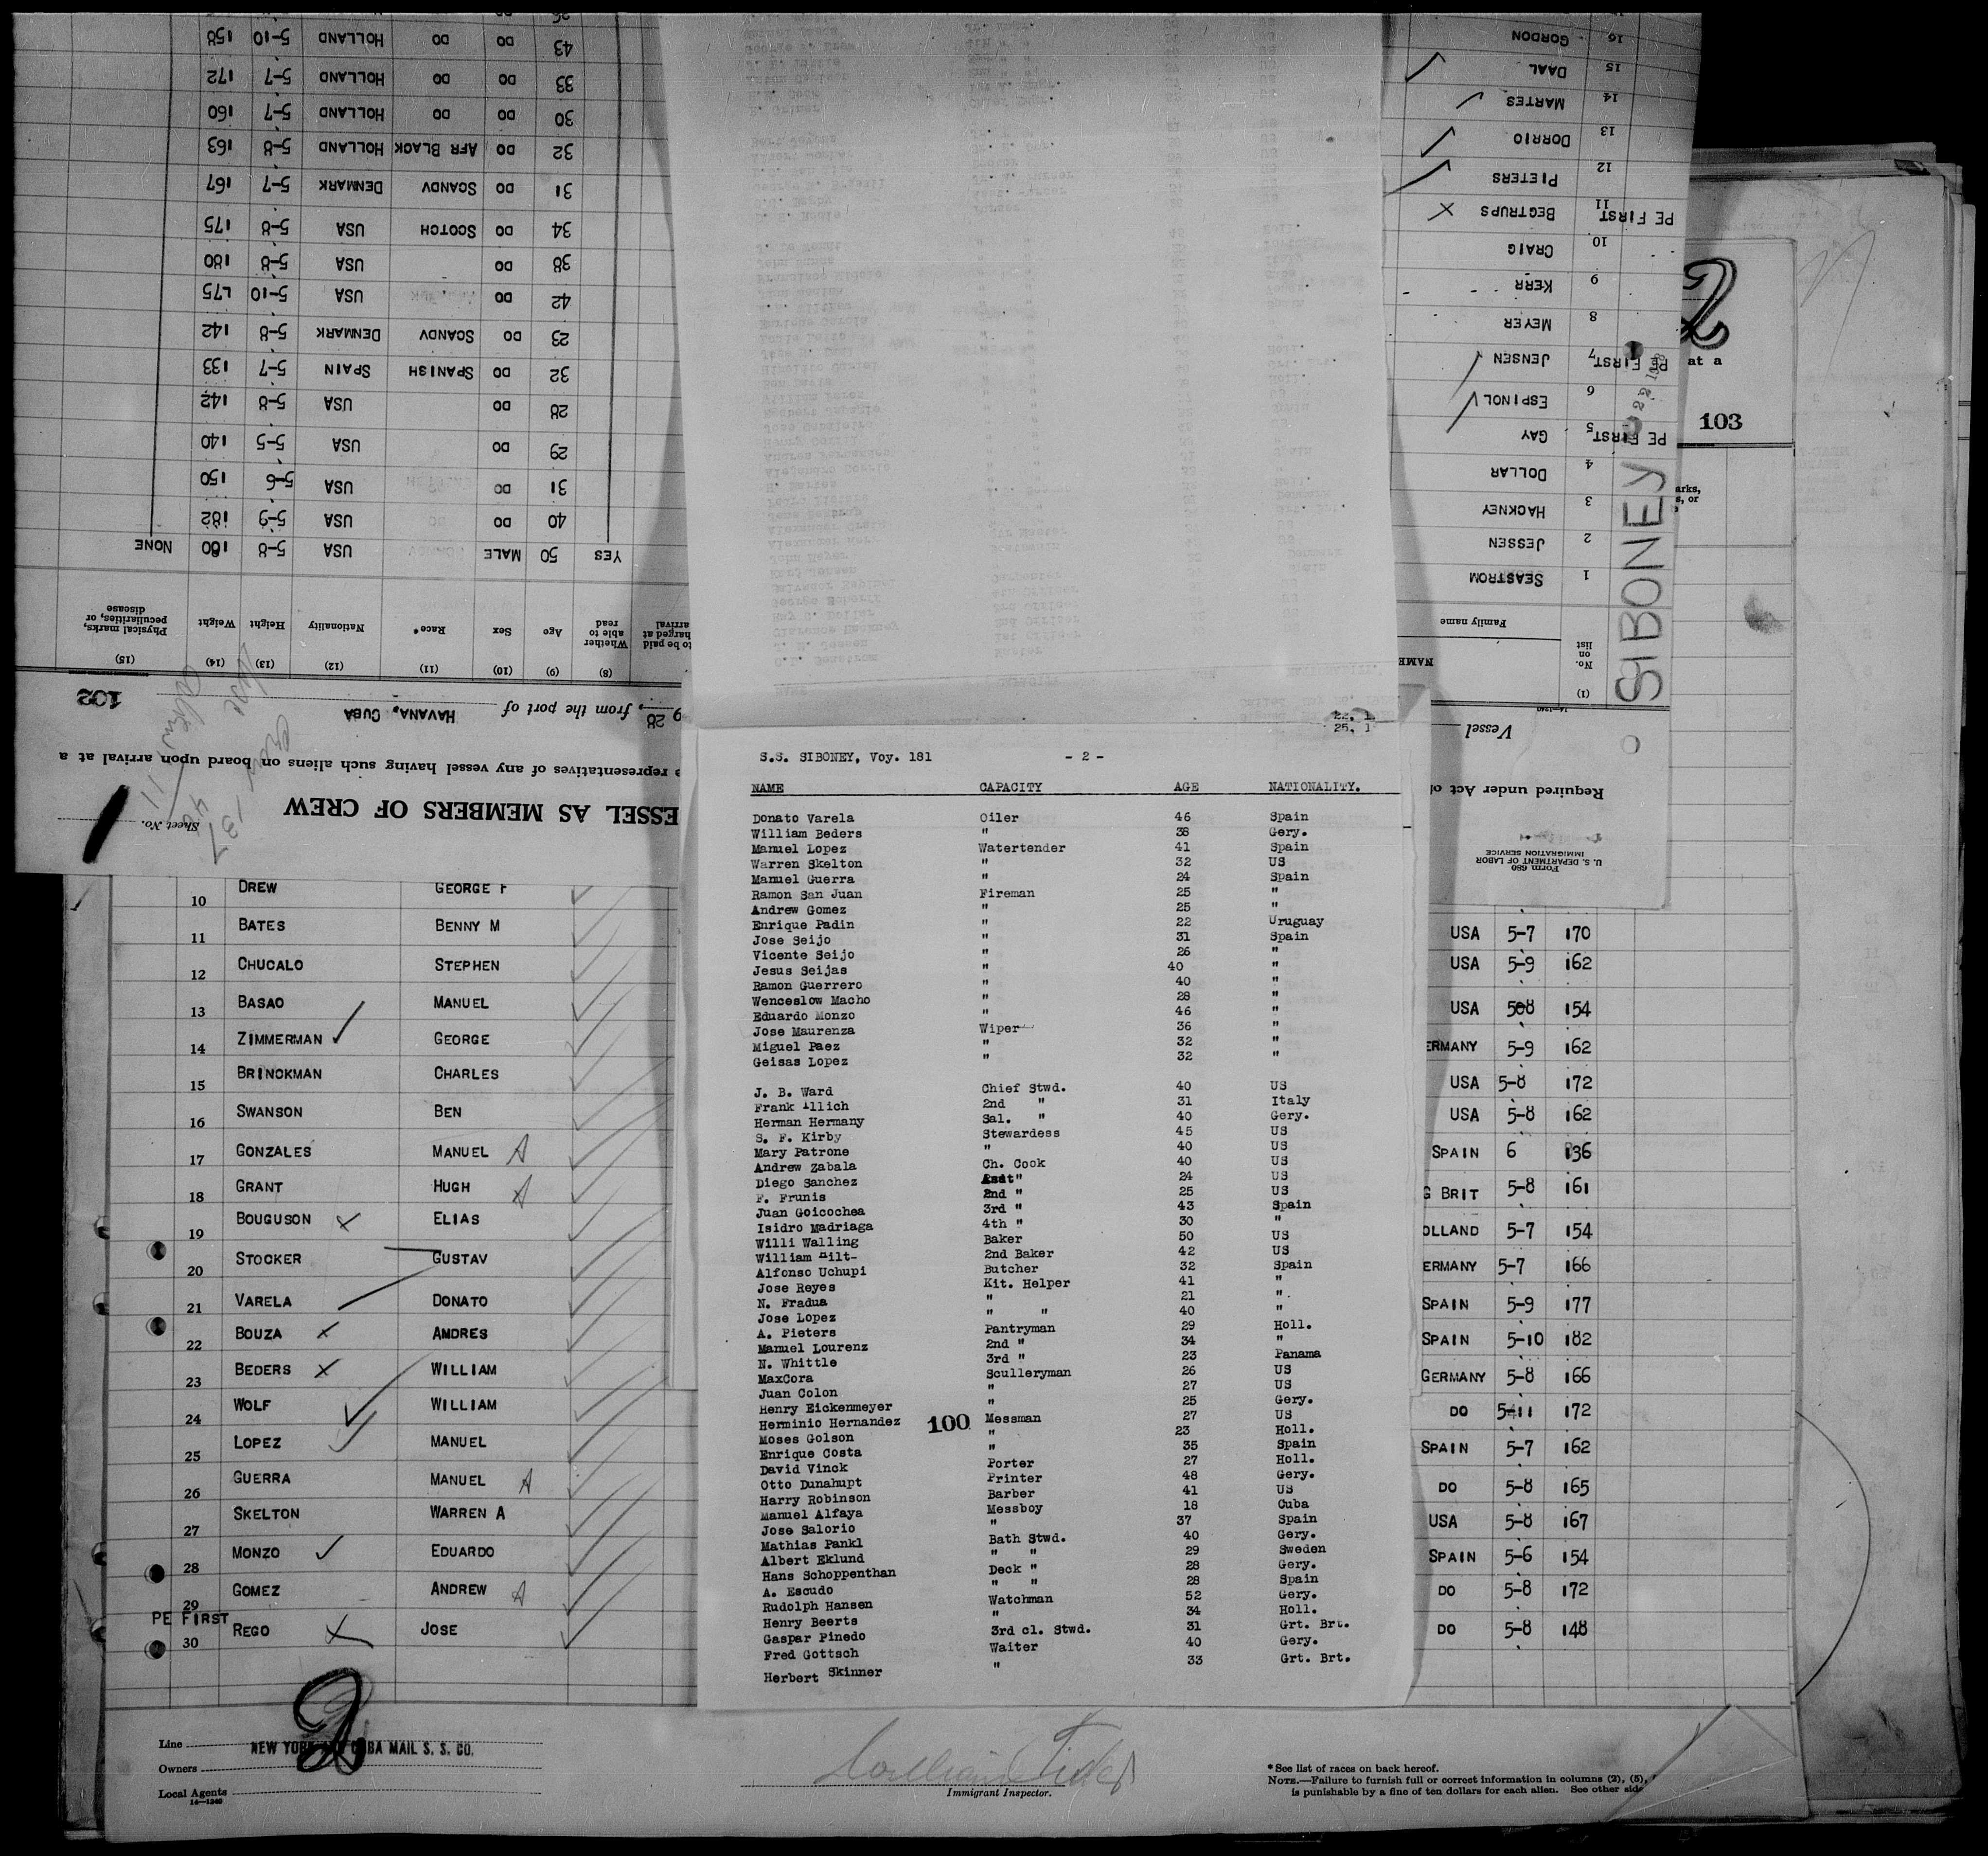 Form 680
U. S. DEPARTMENT OF LABOR
IMMIGRATION SERVICE
Required under Act of
ESSEL AS MEMBERS OF CREW
Sheet No. 1
representatives of any vessel having such aliens on board upon arrival at a
Vessel SIBONEY
28, from the port of HAVANA, CUBA 102
(1) (8) (9) (10) (11) (12) (13) (14) (15)
No. on list NAME Family name to be paid charged at arrival Whether able to read Age Sex Race* Nationality Height Weight Physical marks, peculiarities, or disease
1 SEASTROM YES 50 MALE USA 5-8 180 NONE
2 JESSEN 40 DO USA 5-9 182
3 HACKNEY 31 DO USA 5-6 150
4 DOLLAR 29 DO USA 5-5 140
PE FIRST 5 GAY 28 DO USA 5-8 142
6 ESPINOL 32 DO SPANISH SPAIN 5-7 133
PE FIRST 7 JENSEN 23 DO SCANDV DENMARK 5-8 142
8 MEYER 42 DO USA 5-10 175
9 KERR 38 DO USA 5-8 180
10 CRAIG 34 DO SCOTCH USA 5-8 175
PE FIRST 11 BEGTRUPS 31 DO SCANDV DENMARK 5-7 167
12 PIETERS 32 DO AFR BLACK HOLLAND 5-8 163
13 DORRIO 30 DO DO HOLLAND 5-7 160
14 MARTES 33 DO DO HOLLAND 5-7 172
15 DAAL 43 DO DO HOLLAND 5-10 158
16 GORDON
2
at a
103
S.S. SIBONEY, Voy. 181 - 2 -
NAME CAPACITY AGE NATIONALITY.
Donato Varela Oiler 46 Spain
William Beders " 38 Gery.
Manuel Lopez Watertender 41 Spain
Warren Skelton " 32 US
Manuel Guerra " 24 Spain
Ramon San Juan Fireman 25 "
Andrew Gomez " 25 "
Enrique Padin " 22 Uruguay
Jose Seijo " 31 Spain
Vicente Seijo " 26 "
Jesus Seijas " 40 "
Ramon Guerrero " 40 "
Wenceslow Macho " 28 "
Eduardo Monzo " 46 "
Jose Maurenza Wiper 36 "
Miguel Paez " 32 "
Geisas Lopez " 32 "
J. B. Ward Chief Stwd. 40 US
Frank Illich 2nd " 31 Italy
Herman Hermany Sal. " 40 Gery.
S. F. Kirby Stewardess 45 US
Mary Patrone " 40 US
Andrew Zabala Ch. Cook 40 US
Diego Sanchez Asst " 24 US
F. Frunis 2nd " 25 US
Juan Goicochea 3rd " 43 Spain
Isidro Madriaga 4th " 30 "
Willi Walling Baker 50 US
William Hilt- 2nd Baker 42 US
Alfonso Uchupi Butcher 32 Spain
Jose Reyes Kit. Helper 41 "
N. Fradua " 21 "
Jose Lopez " " 40 "
A. Pieters Pantryman 29 Holl.
Manuel Lourenz 2nd " 34 "
N. Whittle 3rd " 23 Panama
MaxCora Sculleryman 26 US
Juan Colon " 27 US
Henry Eickenmeyer " 25 Gery.
Herminio Hernandez 100 Messman 27 US
Moses Golson " 23 Holl.
Enrique Costa " 35 Spain
David Vinck Porter 27 Holl.
Otto Dunahupt Printer 48 Gery.
Harry Robinson Barber 41 US
Manuel Alfaya Messboy 18 Cuba
Jose Salorio " 37 Spain
Mathias Pankl Bath Stwd. 40 Gery.
Albert Eklund " " 29 Sweden
Hans Schoppenthan Deck " 28 Gery.
A. Escudo " " 28 Spain
Rudolph Hansen Watchman 52 Gery.
Henry Beerts " 34 Holl.
Gaspar Pinedo 3rd cl. Stwd. 31 Grt. Brt.
Fred Gottsch Waiter 40 Gery.
Herbert Skinner " 33 Grt. Brt.
10 DREW GEORGE F
11 BATES BENNY M USA 5-7 170
12 CHUCALO STEPHEN USA 5-9 162
13 BASAO MANUEL USA 508 154
14 ZIMMERMAN GEORGE ERMANY 5-9 162
15 BRINCKMAN CHARLES USA 5-8 172
16 SWANSON BEN USA 5-8 162
17 GONZALES MANUEL SPAIN 6 136
18 GRANT HUGH G BRIT 5-8 161
19 BOUGUSON ELIAS OLLAND 5-7 154
20 STOCKER GUSTAV ERMANY 5-7 166
21 VARELA DONATO SPAIN 5-9 177
22 BOUZA AMDRES SPAIN 5-10 182
23 BEDERS WILLIAM GERMANY 5-8 166
24 WOLF WILLIAM DO 5-11 172
25 LOPEZ MANUEL SPAIN 5-7 162
26 GUERRA MANUEL DO 5-8 165
27 SKELTON WARREN A USA 5-8 167
28 MONZO EDUARDO SPAIN 5-6 154
29 GOMEZ ANDREW DO 5-8 172
PE FIRST 30 REGO JOSE DO 5-8 148
2
Line NEW YORK AND CUBA MAIL S. S. CO.
Owners
Local Agents
14—1240
Immigrant Inspector.
*See list of races on back hereof.
NOTE.—Failure to furnish full or correct information in columns (2), (5),
is punishable by a fine of ten dollars for each alien. See other side